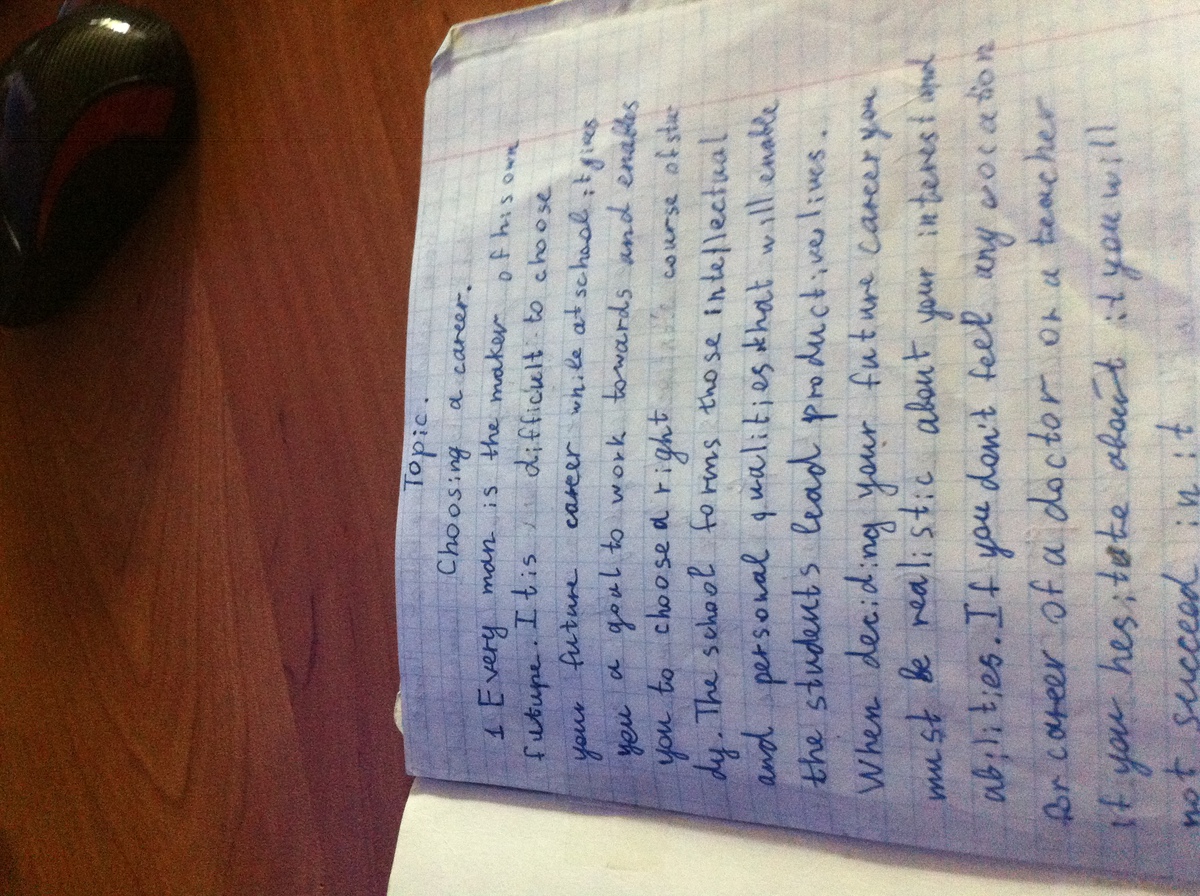 Topic.
Choosing a career.
1 Every man is the maker of his own
future. It is difficult to choose
your future career while at school it gives
you a goal to work towards and enables
you to choose a right course of stu-
dy. The school forms those intellectual
and personal qualities that will enable
the students lead productive lives.
When deciding your future career you
must be realistic about your interest and
abilities. If you don't feel any vocation
for career of a doctor or a teacher
if you hesitate about it you will
not succeed in it